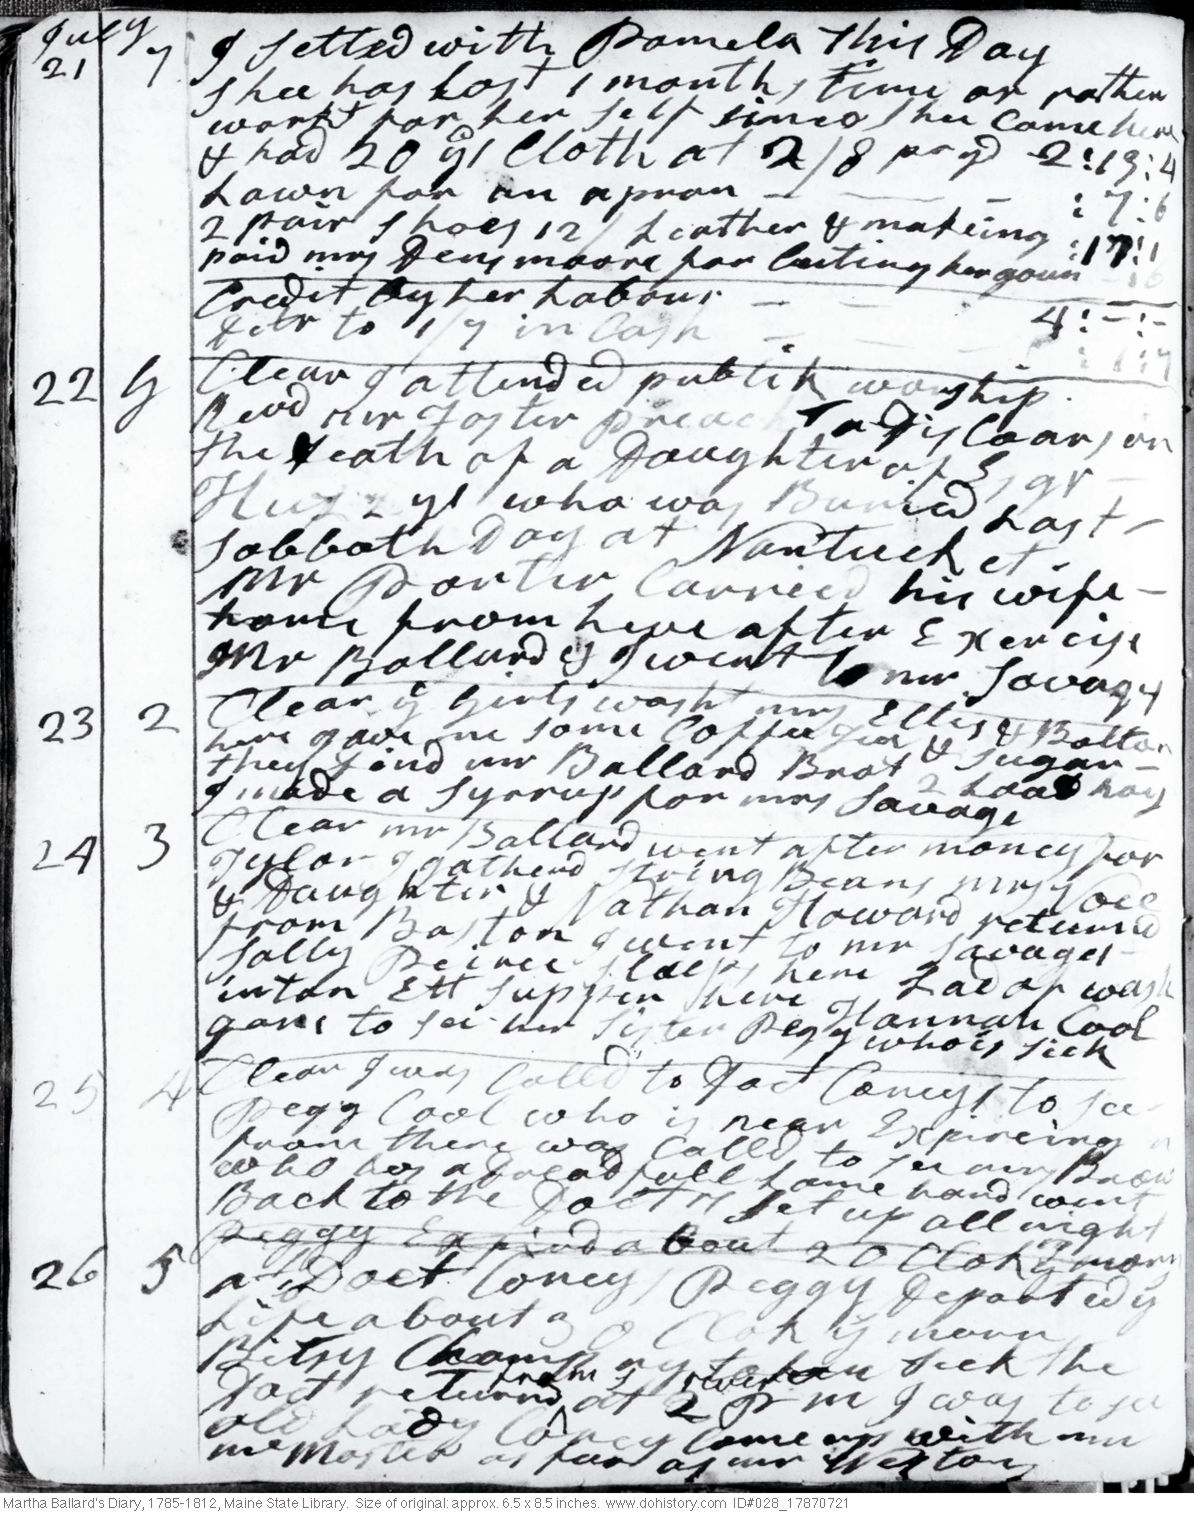 July
21 7 I settld with Pamela This Day
Shee has Lost 1 months Time or rather
workt for her self since shee Came here
& had 20 yds Cloth at 2/8 pr yd 2:13:4
Lawn for an apron — — :7:6
2 pair shoes 12/ Leather & makeing :17:1
paid mrs Densmoore for Cuting her goun
Credit By her Labour — — 4:-:-
to 1/7 in Cash — — :1:7
22 G Clear I attended publik worship.
Revd mr Foster preacht a Discoars on
the Death of a Daughter of Esqr
who was Buried Last
Sabbath Day at Nantucket.
Mr Porter Carried his wife
home from here after Exercise
Mr Ballard & I went to mr Savages
23 2 Clear ye Girls washt mrs Ellis & Bolton
here gave me some Coffee Tea & Sugar
they find mr Ballard Brot 2 Load hay
I made a syrrup for mrs Savage
24 3 Clear mr Ballard went after money for
Tylor I gatherd string Beans mrs
& Daughter & Nathan Howard returned
from Boston I went to mr Savages
Sally Peirce sleeps here
inton Ett supper here Hannah Cool
gone to see her Sister Pegg who is sick
25 4 Clear I was Calld to Doct Conys to see
Pegg Cool who is near Expireing
from there was Calld to see mrs Brown
who has a Dreadfull Lame hand went
Back to the Doct Set up all night
Peggy Expired about 2 O Clok ye morn
26 5 at Doct Conys Peggy Departed ys
Life about 2 O Clok ye morn
Bitsy taken sick the
Doct returned at 2 P m I was to see
old Lady Coney Came up with mr
mc Master as far as mr Westons
Martha Ballard's Diary, 1785-1812, Maine State Library. Size of original: approx. 6.5 x 8.5 inches. www.dohistory.com ID#028_17870721